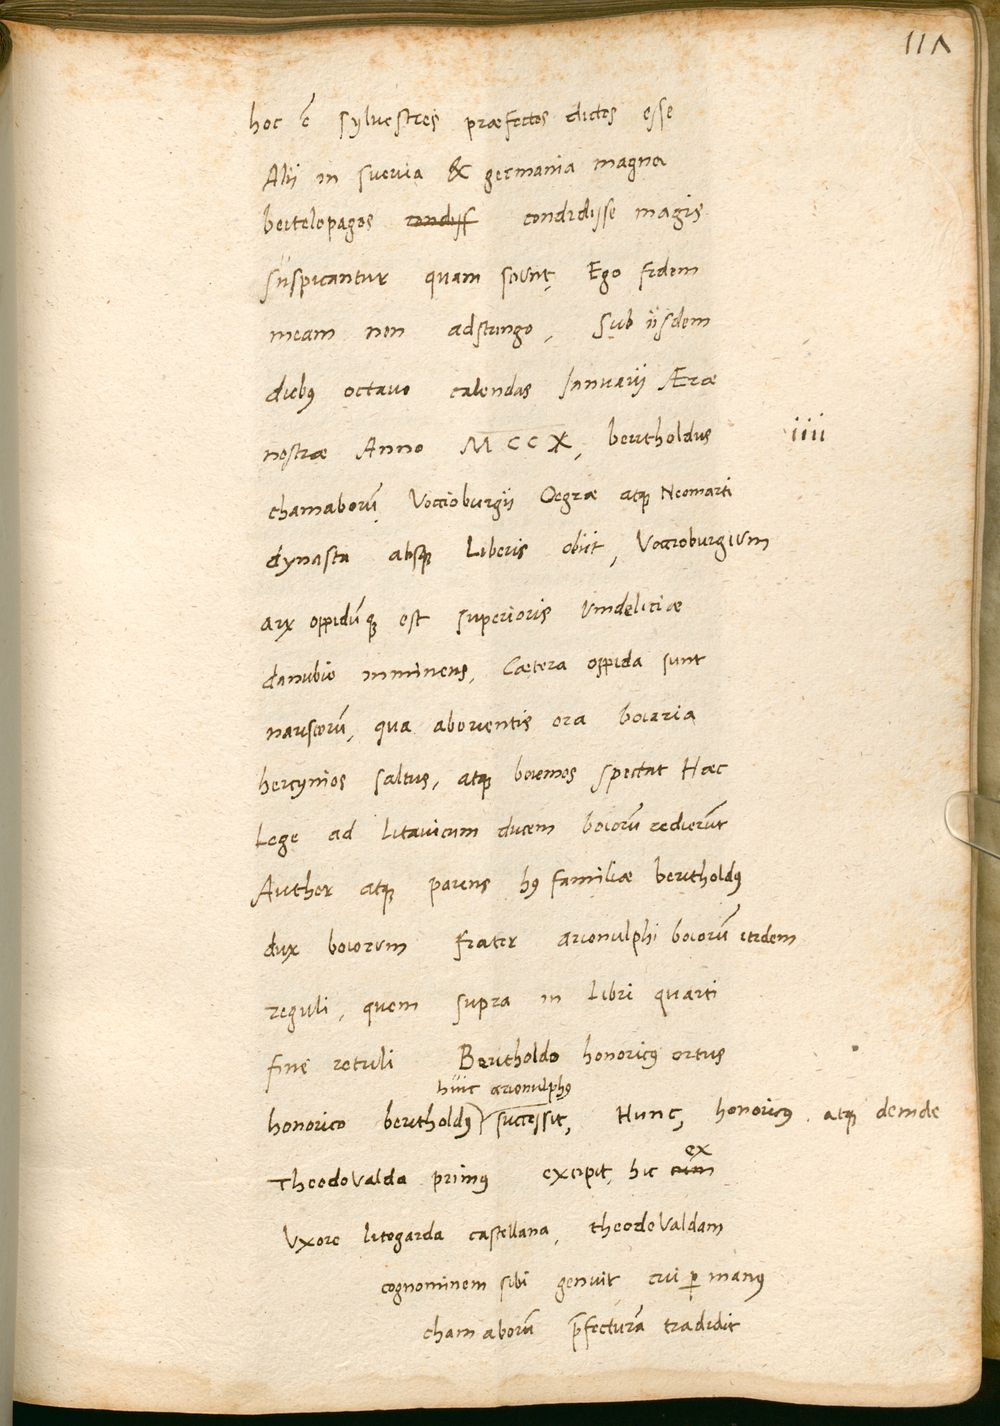 118
hoc ē sylvestres præfectos dictos esse
Alii in svevia & germania magna
bertelopagos condiss condidisse magis
suspicantur quam sciunt, Ego fidem
meam non adstringo, Sub iisdem
diebꝰ octavo calendas Ianuarii Æræ
nostræ Anno MCCX, bertholdus iiii
chamaborū Voccioburgii Oegræ atqꝫ Neomarti
dynasta absqꝫ Liberis obiit, Voccioburgium
arx oppidūqꝫ est superioris Vindeliciæ
danubio imminens, Cætera oppida sunt
nariscorū, qua aborientis ora boiaria
hercynios saltus, atqꝫ boiemos spectat Hæc
Lege ad Litavicum ducem boiorū redierūt
Author atqꝫ parens hꝰ familiæ bertholdꝰ
dux boiorum frater arionulphi boiorū itidem
reguli, quem supra in Libri quarti
fine retuli Bertholdo honoricꝰ ortus
huic arionulphꝰ
honorico bertholdꝰ successit, Hunc, honoricꝰ atqꝫ deinde
ex
Theodovalda primꝰ excipit, hic cum
Vxore litogarda castellana, theodovaldam
cognominem sibi genuit cui ꝑ manꝰ
chamaborū p̄fecturā tradidit